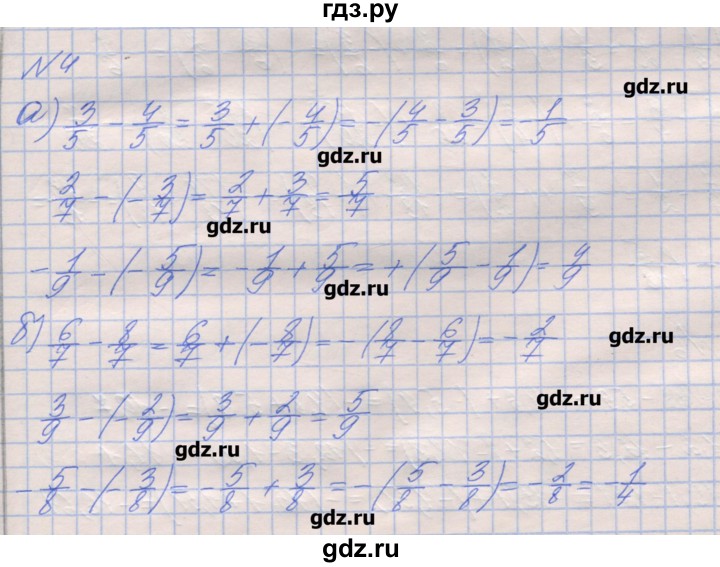 гдз.ру
№4
gdz.ru
а) 3/5 - 4/5 = 3/5 + (- 4/5) = -(4/5 - 3/5) = -1/5
gdz.ru
2/7 - (- 3/7) = 2/7 + 3/7 = 5/7
gdz.ru
- 1/9 - (- 5/9) = - 1/9 + 5/9 = +(5/9 - 1/9) = 4/9
gdz.ru
б) 6/7 - 8/7 = 6/7 + (- 8/7) = -(8/7 - 6/7) = - 2/7
gdz.ru
gdz.ru
3/9 - (- 2/9) = 3/9 + 2/9 = 5/9
gdz.ru
- 5/8 - (- 3/8) = - 5/8 + 3/8 = -(5/8 - 3/8) = - 2/8 = - 1/4
gdz.ru
gdz.ru